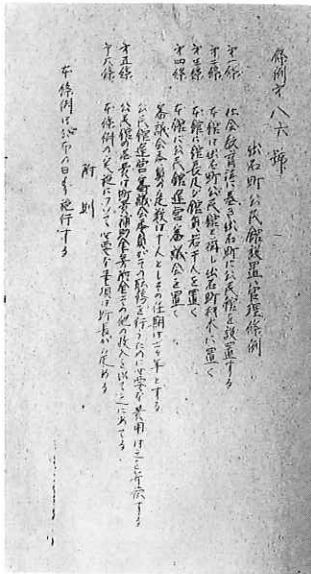 條例才八六號
出石町公民館設置管理條例
才一條 社会教育法に基き出石町に公民館を設置する
才二條 本館は出石町公民館と稱し出石町材木に置く
才三條 本館に館長及び館員若干人を置く
才四條 本館に公民館運営審議会を置く
審議会委員の定数は十人としその任期は二ヶ年とする
公民館運営審議会委員がその職務を行うために必要な費用は之を弁償する
才五條 公民館の経費は町費補助金寄附金その他の收入を以て之にあてる
才六條 本條例の実施について必要な事項は町長が定める
附則
本條例は公布の日より施行する